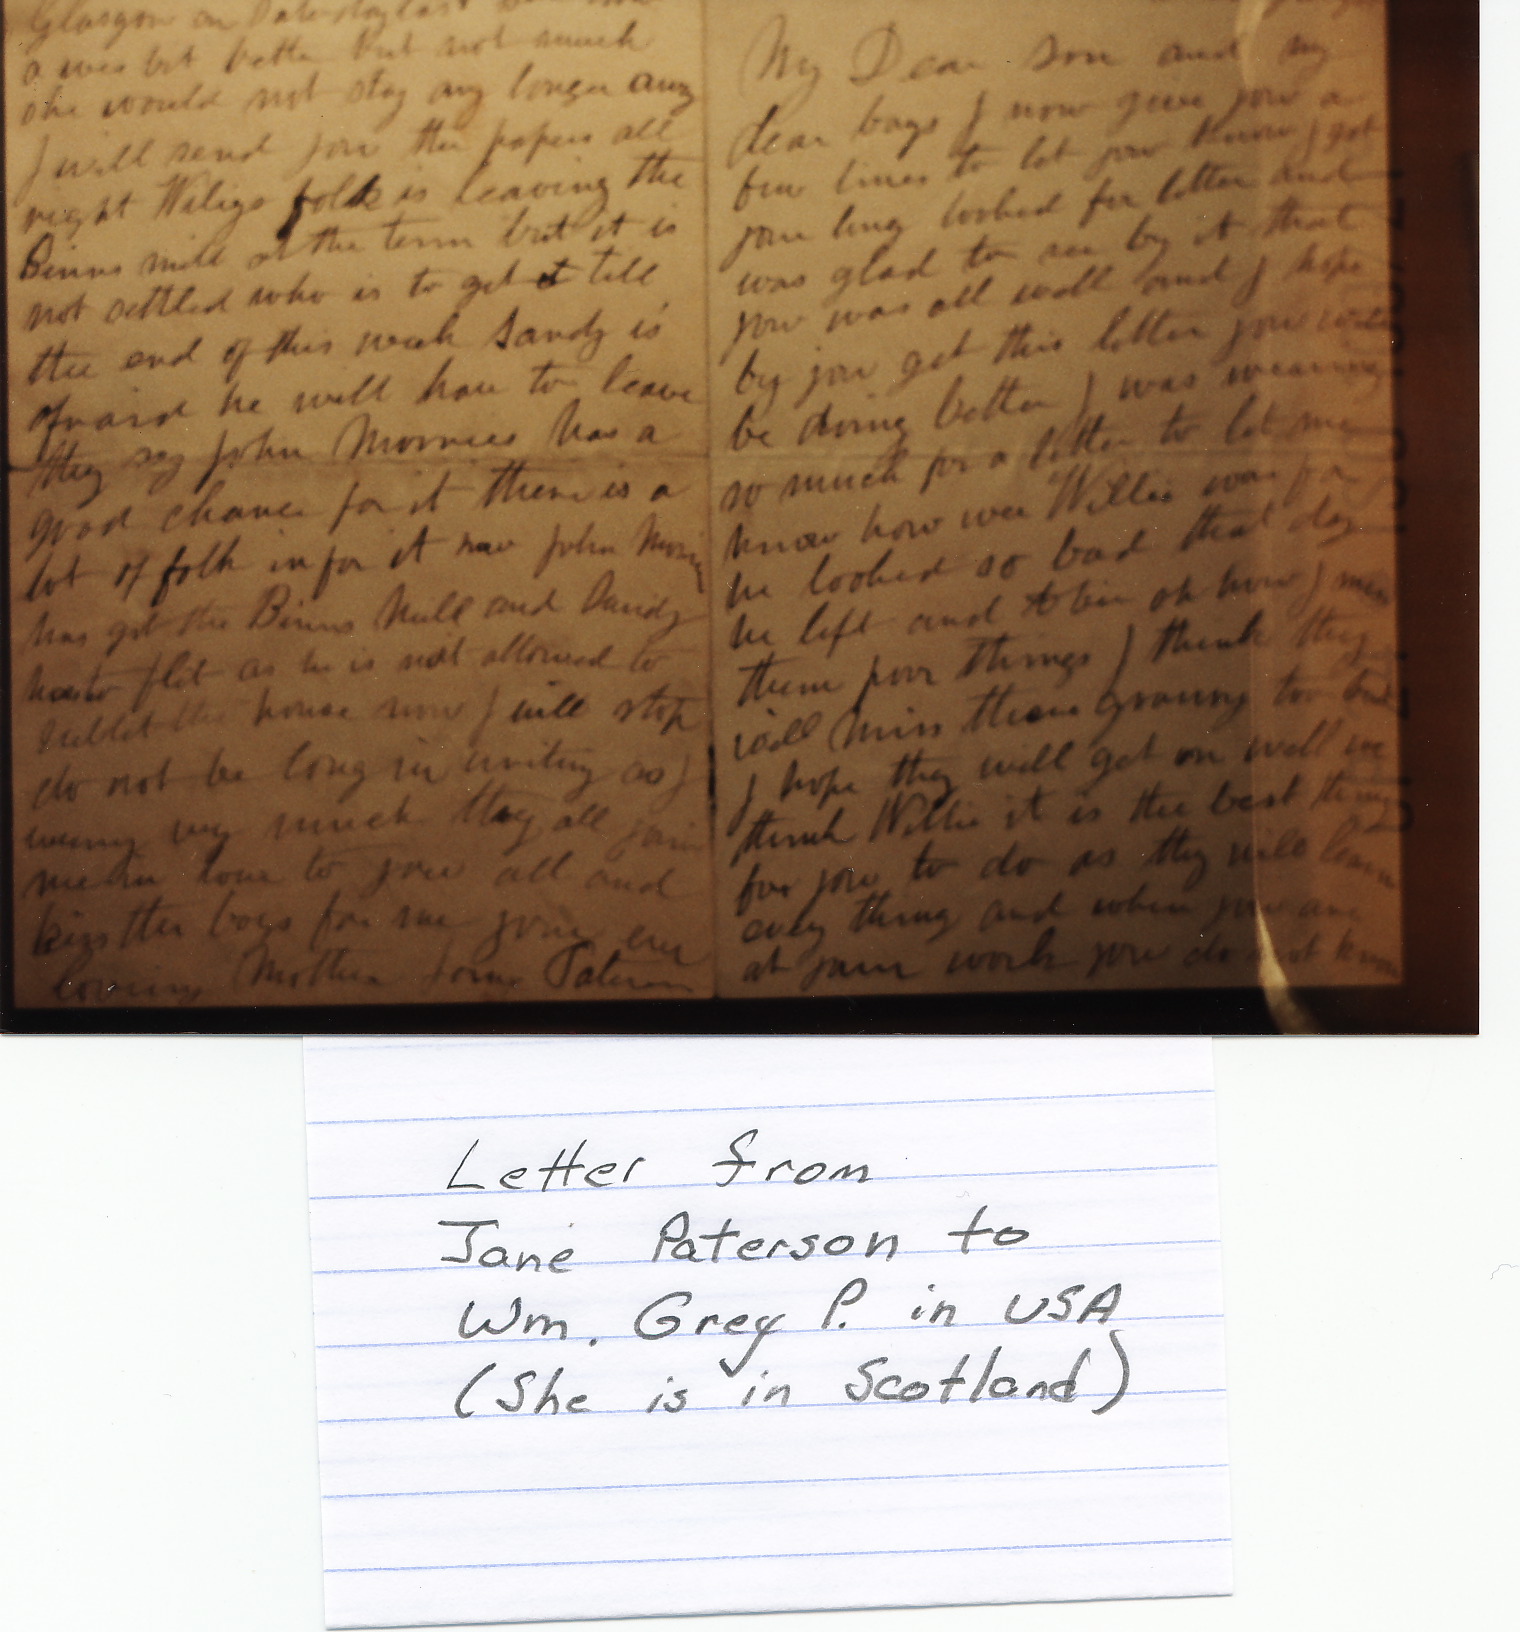 Glasgow on Saturday last
a wee bit better but not much
she would not stay any longer any
I will send you the papers all
right folk is leaving the
Binns mill at the term but it is
not settled who is to get it till
the end of this week Sandy is
afraid he will have to leave
they say John Morries has a
good chance for it there is a
lot of folk in for it now John
has got the Binns Mill and Sandy
has to flit as he is not allowed to
the house now I will stop
do not be long in writing as I
very much they all join
me in love to you all and
kiss the boys for me your ever
loving Mother Jane Paterson
My Dear son and my
dear boys I now give you a
few lines to let you know I got
your long looked for letter and
was glad to see by it that
you was all well and I hope
by you get this letter you will
be doing better I was wearing
so much for a letter to let me
know how wee Willie was for
he looked so bad that day
he left and oh how I miss
them poor things I think they
will miss there granny too but
I hope they will get on well we
think Willie it is the best thing
for you to do as they will learn
every thing and when you are
at your work you do not know
Letter from
Jane Paterson to
Wm. Grey P. in USA
(She is in Scotland)